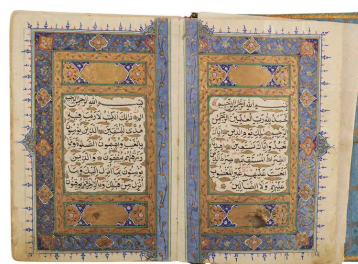 بسم الله الرحمن الرحيم
الحمد لله رب العلمين الرحمن
الرحيم ملك يوم الدين اياك
نعبد واياك نستعين اهدنا
الصراط المستقيم صراط الذين
انعمت عليهم غير المغضوب
عليهم ولا الضالين
بسم الله الرحمن الرحيم
الم ذلك الكتب لا ريب فيه
هدى للمتقين الذين يؤمنون
بالغيب ويقيمون الصلوة و
مما رزقنهم ينفقون والذين
يؤمنون بما انزل اليك وما
انزل من قبلك وبالاخرة هم يوقنون